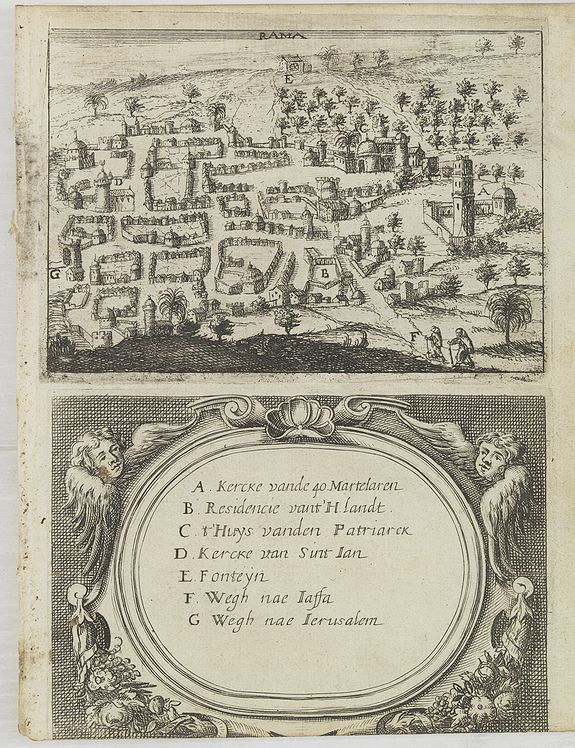 RAMA
E
C
A
D
G
B
F
A. Kercke vande 40 Martelaren
B. Residencie vant'H. landt.
C. t'Huys vanden Patriarck
D. Kercke van Sint Ian
E. Fonteyn
F. Wegh nae Iaffa
G Wegh nae Ierusalem